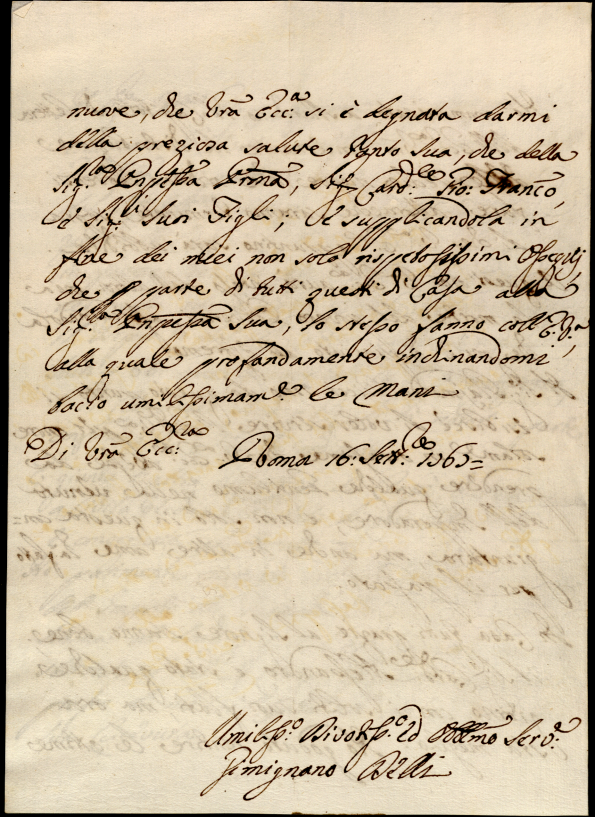 nuove, che Vrã Ecc.ᵃ si è degnata darmi
della preziosa salute tanto sua, che della
Sig.ʳᵃ Pnpessa Erma, Sig.ʳ Card.ˡᵉ Gio: Franco,
e Sig.ʳⁱ suoi Figli, e supplicandola in
fine dei miei non solo rispetosissimi Ossequij
che p parte di tutti questi di Casa alla
Sig.ʳᵃ Pnpessa sua, lo stesso fanno coll'E.V.ᵃ,
alla quale profondamente inchinandomi
bacio umilissimam.ᵉ le Mani
Di Vrã Ecc.ᶻᵃ Roma 16: Sett.ᵇʳᵉ 1765=
Umiliss.º Divotiss.º ed Obblmo Serv.ᵉ
Gimignano